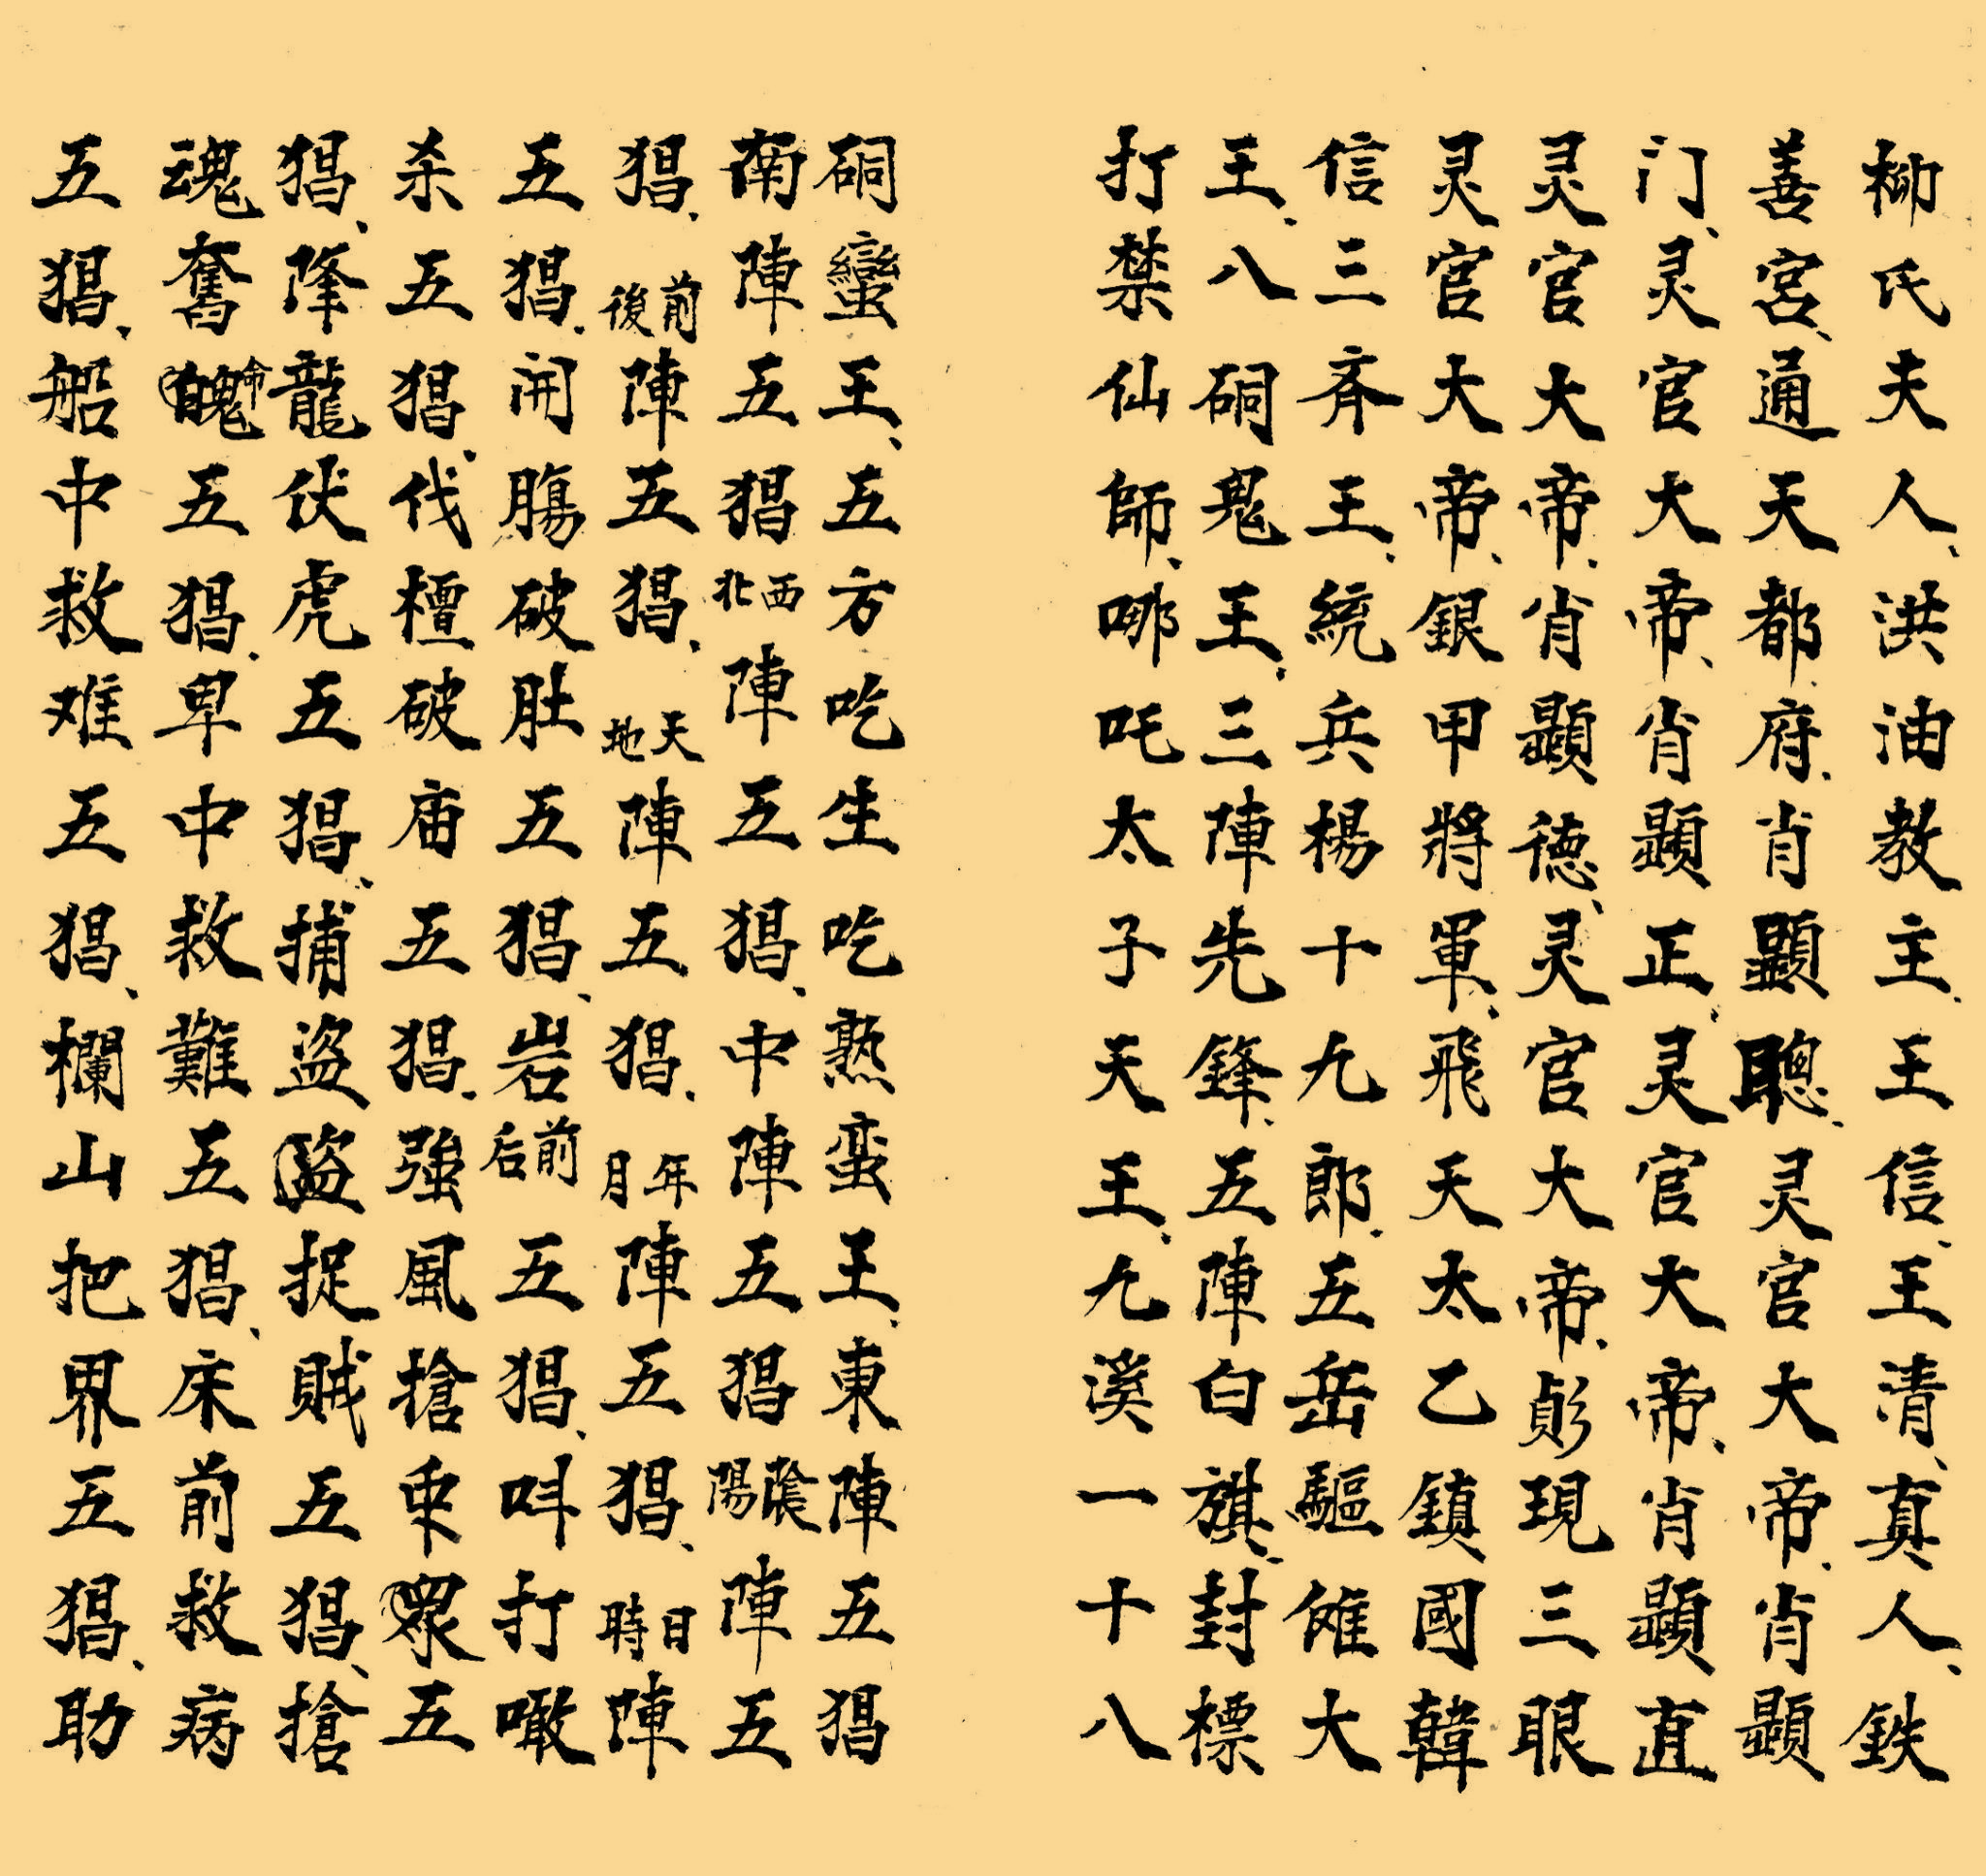 柳氏夫人、洪油教主、王信、王清、真人、鉄
善宮、通天都府、肖顯聰、灵官大帝、肖顯
门、灵官大帝、肖顯正、灵官大帝、肖顯直
灵官大帝、肖顯德、灵官大帝、現三眼
灵官大帝、銀甲將軍、飛天太乙鎮國韓
信三斉王、統兵楊十九郎、五岳驅傩大
王、八硐鬼王、三陣先鋒、五陣白旗、封標
打禁仙師、哪吒太子天王、九溪一十八
硐蠻王、五方吃生吃熟蛮王、東陣五猖
南陣五猖西北陣五猖、中陣五猖陰陽陣五
猖、前後陣五猖、天地陣五猖、年月陣五猖、日時陣
五猖、開腸破肚五猖、岩前后五猖、叫打噉
杀五猖、伐檀破庙五猖、強風搶眾五
猖、降龍伏虎五猖、捕盜捉賊五猖、搶
魂奪命五猖、卑中救難五猖、床前救病
五猖、船中救难五猖、欄山把界五猖、助